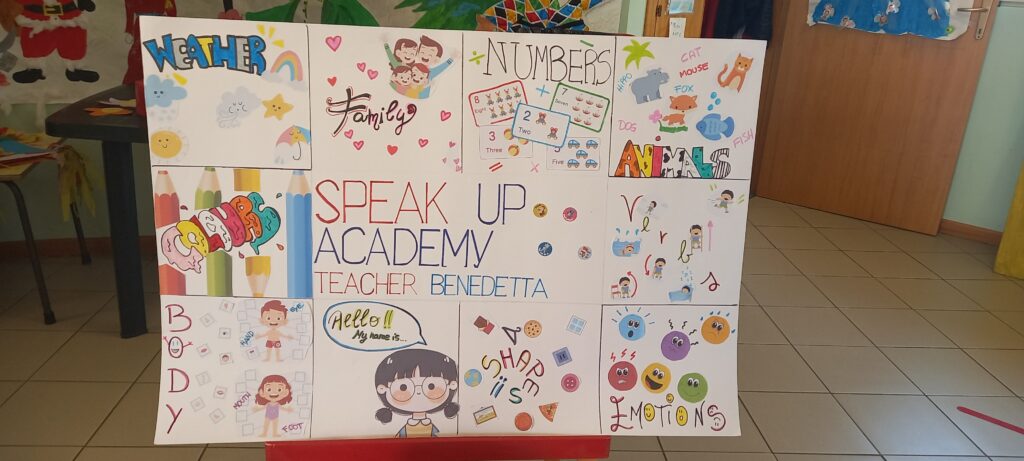 WEATHER
Family
NUMBERS
8
Eight
7
Seven
2
Two
3
Three
Five
CAT
MOUSE
HIPPO
FOX
DOG
FISH
ANIMALS
COLOURS
SPEAK UP
ACADEMY
TEACHER BENEDETTA
Verbs
BODY
EYE
HAND
MOUTH
FOOT
Hello!!
My name is...
SHAPES
EMOTIONS